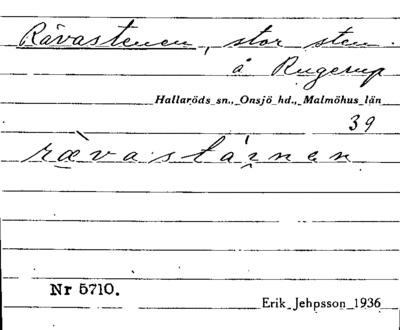 Rävastenen, stor sten
å Rugerup
Hallaröds sn., Onsjö hd., Malmöhus län
39
Nr 5710.
Erik Jehpsson 1936